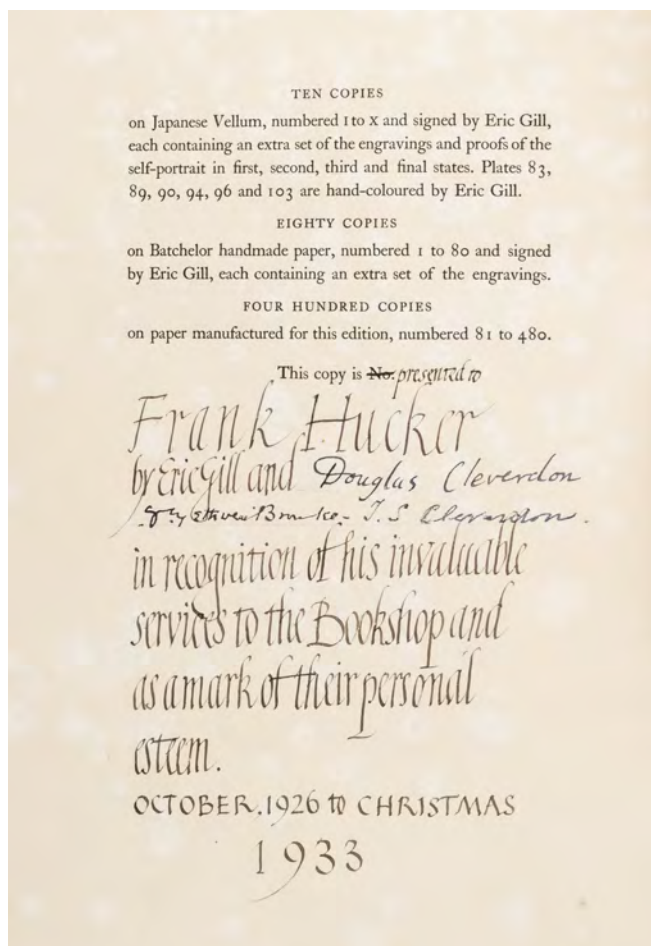 TEN COPIES
on Japanese Vellum, numbered I to X and signed by Eric Gill,
each containing an extra set of the engravings and proofs of the
self-portrait in first, second, third and final states. Plates 83,
89, 90, 94, 96 and 103 are hand-coloured by Eric Gill.
EIGHTY COPIES
on Batchelor handmade paper, numbered 1 to 80 and signed
by Eric Gill, each containing an extra set of the engravings.
FOUR HUNDRED COPIES
on paper manufactured for this edition, numbered 81 to 480.
This copy is No. presented to
Frank Hucker
by Eric Gill and Douglas Cleverdon
T. S Cleverdon.
in recognition of his invaluable
services to the Bookshop and
as a mark of their personal
esteem.
OCTOBER. 1926 to CHRISTMAS
1933